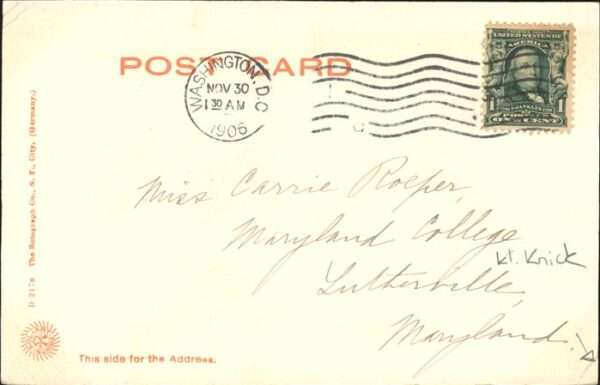 POST CARD
WASHINGTON, D.C.
NOV 30
1 30 AM
1906
UNITED STATES OF
AMERICA
1 1
ONE CENT
Miss Carrie Roeper,
Maryland College
Kt. Knick
Lutherville,
Maryland.
D 2178 The Rotograph Co., N. Y. City. (Germany.)
This side for the Address.